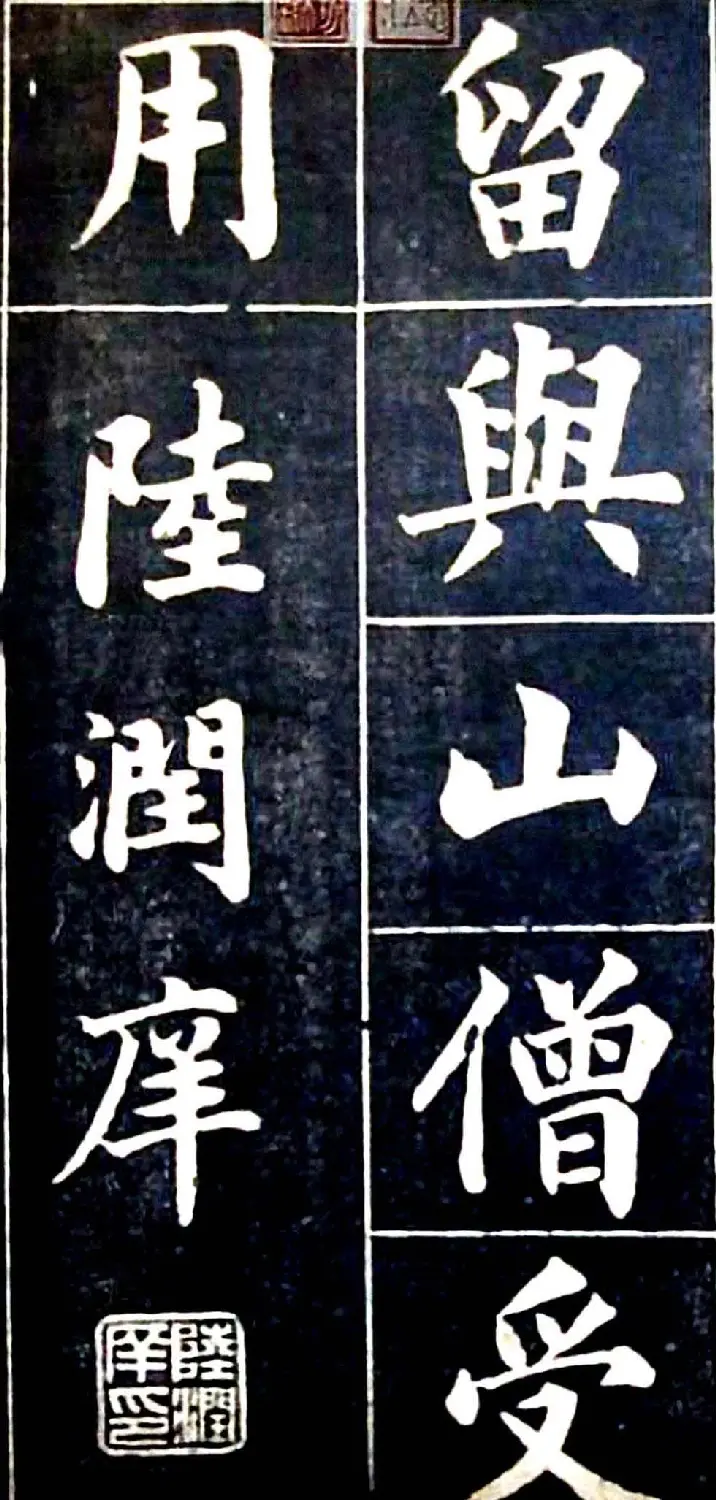 留與山僧受
用陸潤庠
陸潤庠印